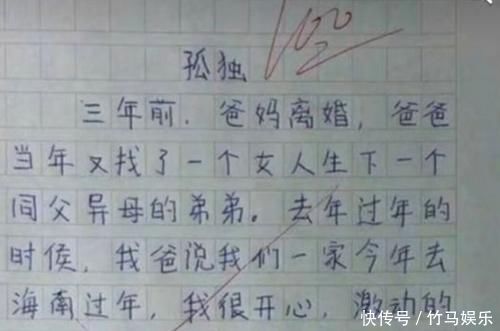 孤独
100
三年前.爸妈离婚,爸爸
当年又找了一个女人生下一个
同父异母的弟弟。去年过年的
时侯,我爸说我们一家今年去
海南过年,我很开心,激动的
快传号/竹马娱乐